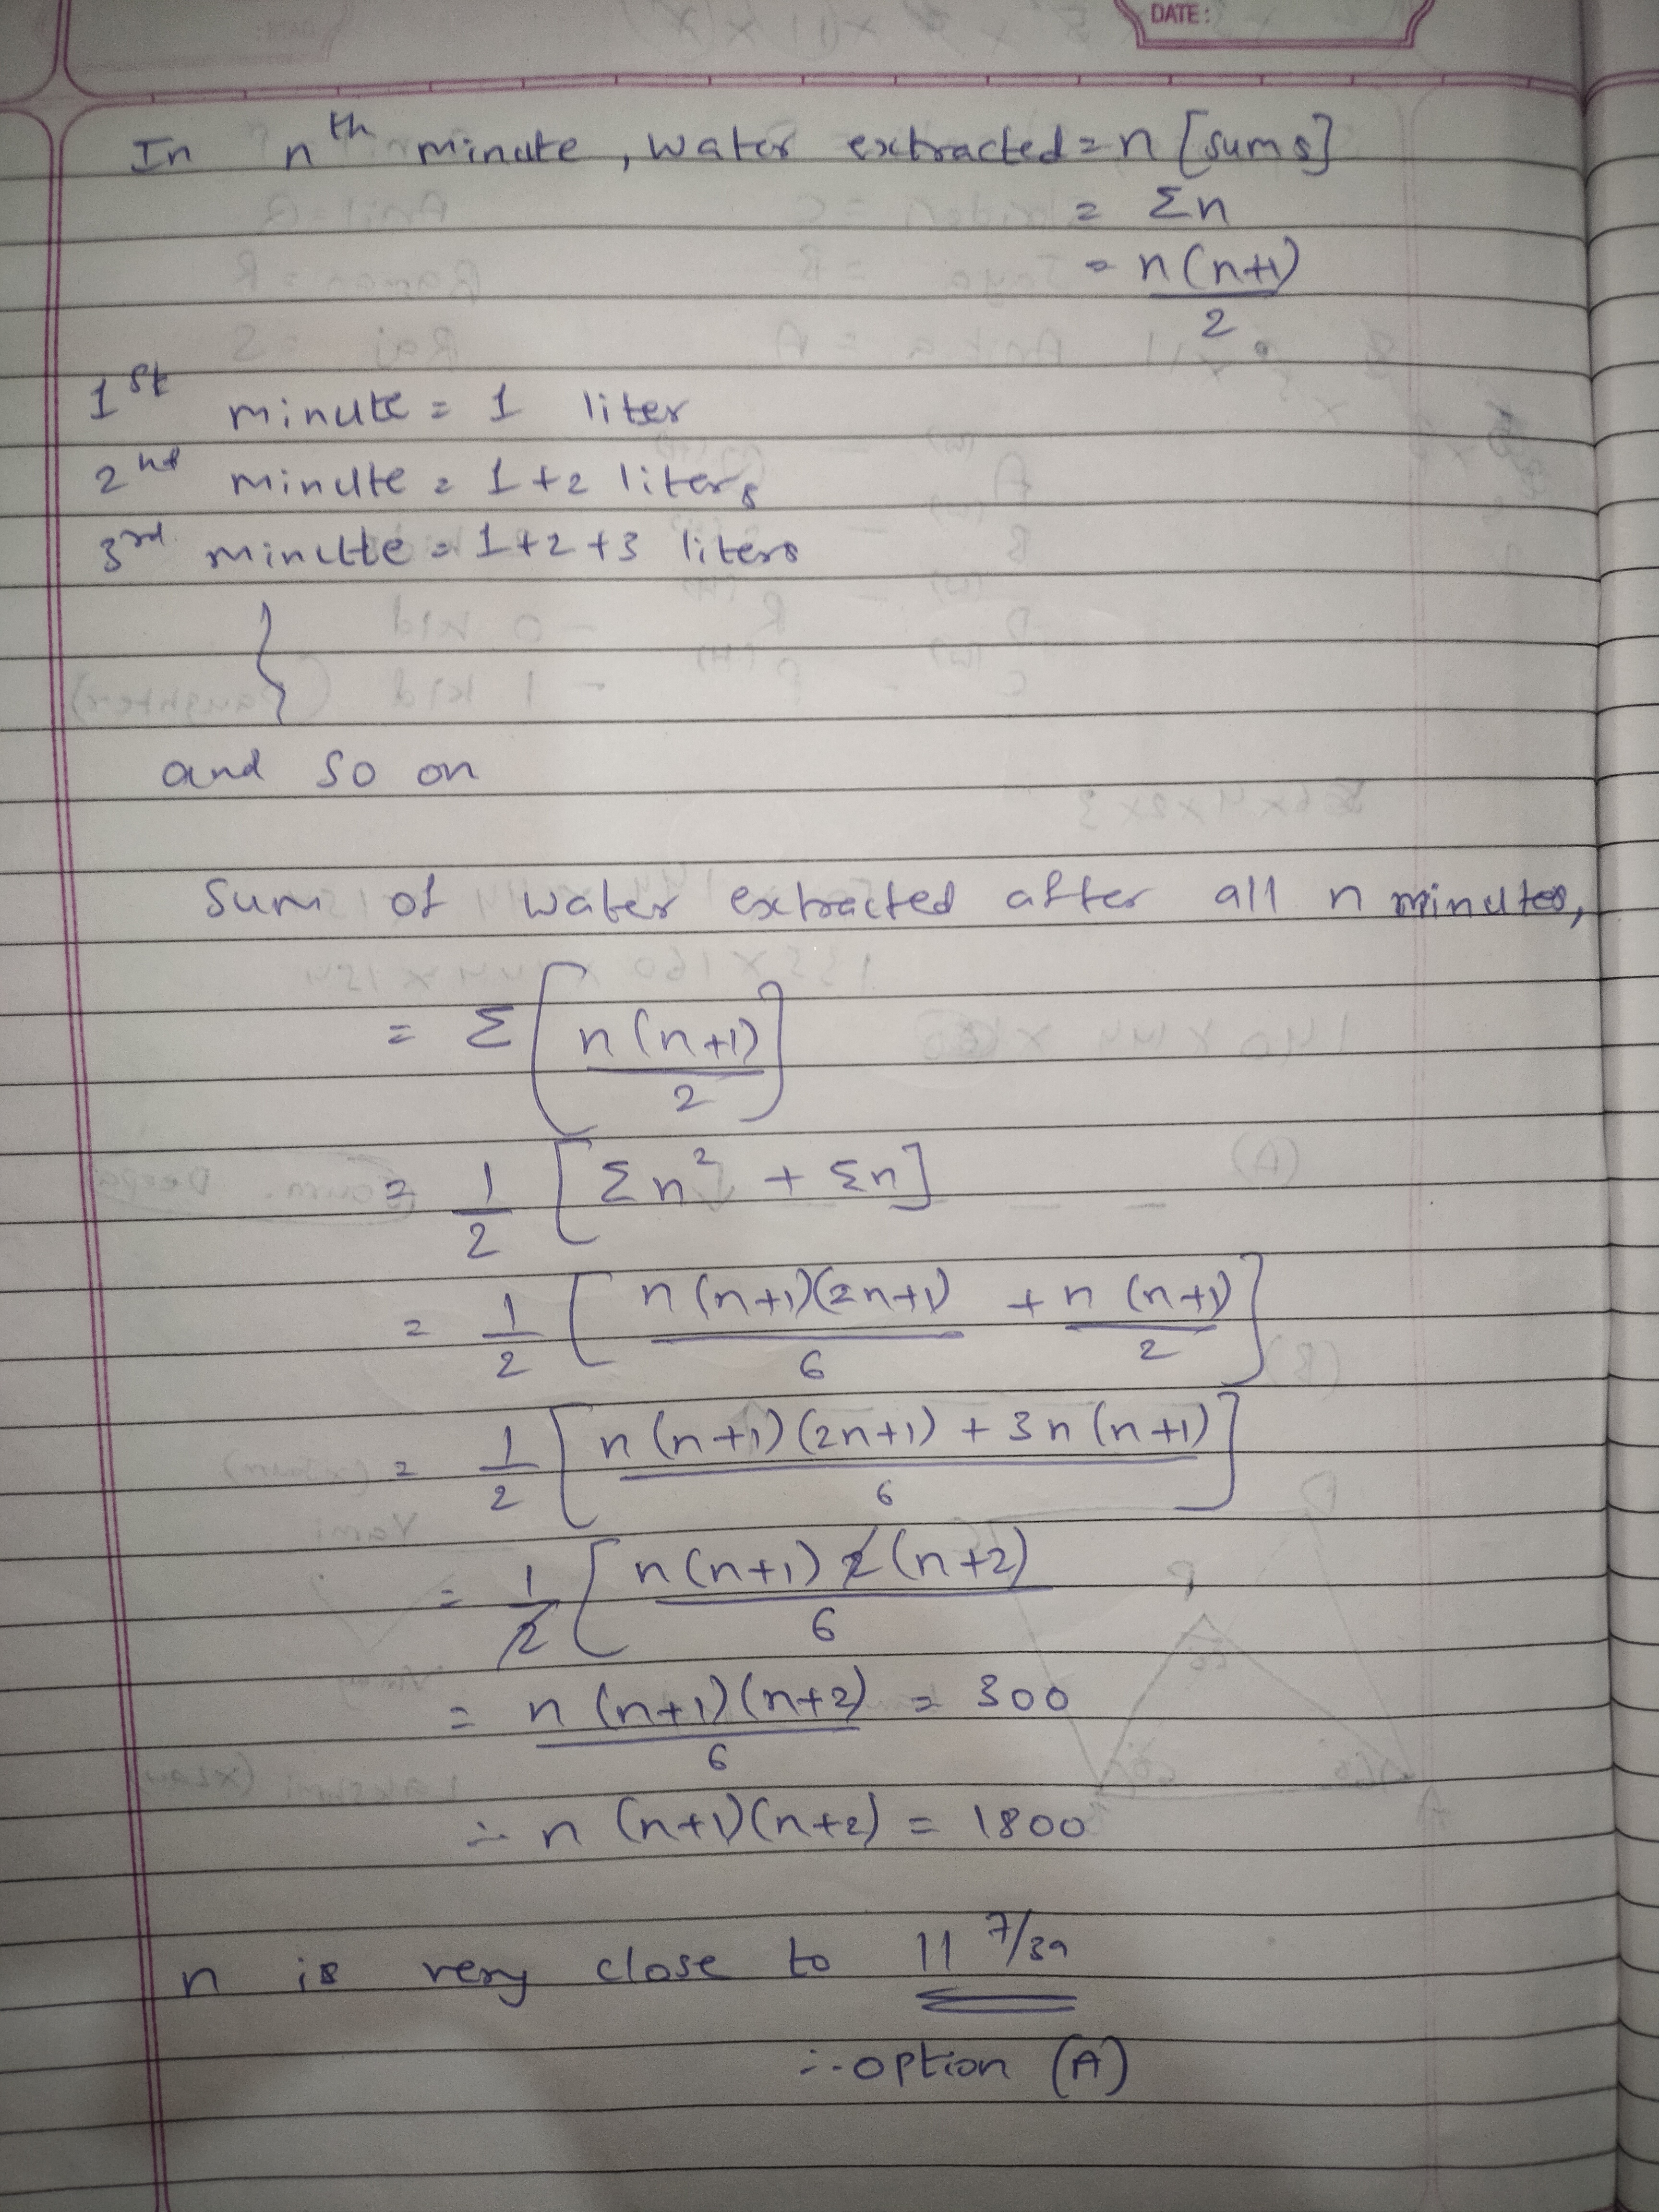 DATE:
In nth minute, water extracted = n [sums]
= Σn
= n(n+1)/2
1st minute = 1 liter
2nd minute = 1+2 liters
3rd minute = 1+2+3 liters
and so on
Sum of water extracted after all n minutes,
= Σ[n(n+1)/2]
= 1/2 [Σn² + Σn]
= 1/2 [n(n+1)(2n+1)/6 + n(n+1)/2]
= 1/2 [n(n+1)(2n+1) + 3n(n+1)/6]
= 1/2 [n(n+1)2(n+2)/6
= n(n+1)(n+2)/6 = 300
∴ n(n+1)(n+2) = 1800
n is very close to 11 7/39
∴ option (A)